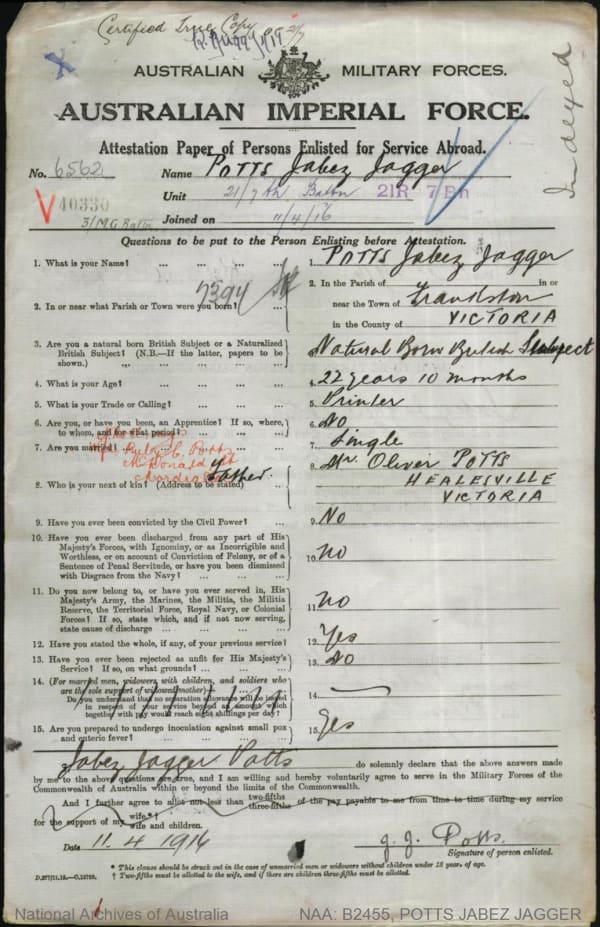 Certified True Copy
AUSTRALIAN MILITARY FORCES.
AUSTRALIAN IMPERIAL FORCE.
Indexed
Attestation Paper of Persons Enlisted for Service Abroad.
No. 6562 Name POTTS Jabez Jagger
Unit 21/7th Battn 21R 7 Bn
40330
3/M.G. Battn Joined on 11/4/16
Questions to be put to the Person Enlisting before Attestation.
1. What is your Name? ... ... ... ... 1. POTTS Jabez Jagger
7394
2. In or near what Parish or Town were you born? ... 2. In the Parish of in or
near the Town of Frankston
in the County of VICTORIA
3. Are you a natural born British Subject or a Naturalized British Subject? (N.B.—If the latter, papers to be shown.) 3. Natural Born British Subject
4. What is your Age? ... ... ... ... 4. 22 years 10 months
5. What is your Trade or Calling? ... ... ... 5. Printer
6. Are you, or have you been, an Apprentice? If so, where, to whom, and for what period? ... ... ... 6. No
7. Are you married? ... ... ... 7. Single
Potts
McDonald St
8. Who is your next of kin? (Address to be stated) ... Father. 8. Mr. Oliver POTTS
HEALESVILLE
VICTORIA
9. Have you ever been convicted by the Civil Power? ... 9. No
10. Have you ever been discharged from any part of His
Majesty's Forces, with Ignominy, or as Incorrigible and
Worthless, or on account of Conviction of Felony, or of a
Sentence of Penal Servitude, or have you been dismissed
with Disgrace from the Navy? ... ... ... 10. No
11. Do you now belong to, or have you ever served in, His
Majesty's Army, the Marines, the Militia, the Militia
Reserve, the Territorial Force, Royal Navy, or Colonial
Forces? If so, state which, and if not now serving,
state cause of discharge ... ... ... 11. No
12. Have you stated the whole, if any, of your previous service? 12. Yes
13. Have you ever been rejected as unfit for His Majesty's
Service? If so, on what grounds? ... ... 13. No
14. (For married men, widowers with children, and soldiers who
are the sole support of widowed mother)—
Do you understand that no separation allowance will be issued
in respect of your service beyond an amount which
together with pay would reach eight shillings per day? 14.
15. Are you prepared to undergo inoculation against small pox
and enteric fever? ... ... ... 15. Yes
I, Jabez Jagger Potts do solemnly declare that the above answers made
by me to the above questions are true, and I am willing and hereby voluntarily agree to serve in the Military Forces of the
Commonwealth of Australia within or beyond the limits of the Commonwealth.
And I further agree to allot not less than two-fifths three-fifths of the pay payable to me from time to time during my service
for the support of my wife*† wife and children.
Date 11.4.1916 J. J. Potts.
Signature of person enlisted.
* This clause should be struck out in the case of unmarried men or widowers without children under 18 years of age.
† Two-fifths must be allotted to the wife, and if there are children three-fifths must be allotted.
National Archives of Australia NAA: B2455, POTTS JABEZ JAGGER